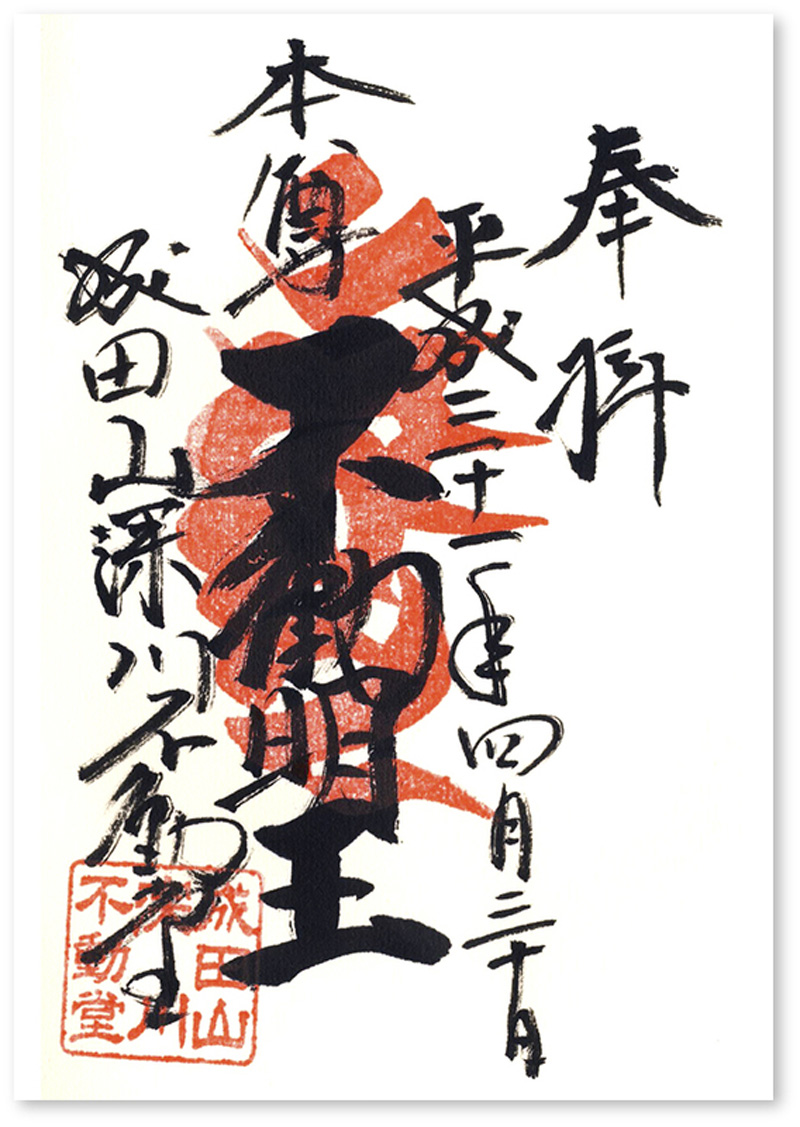 奉拝
平成三十一年四月三十日
本尊
不動明王
成田山深川不動堂
成田山
深川
不動堂